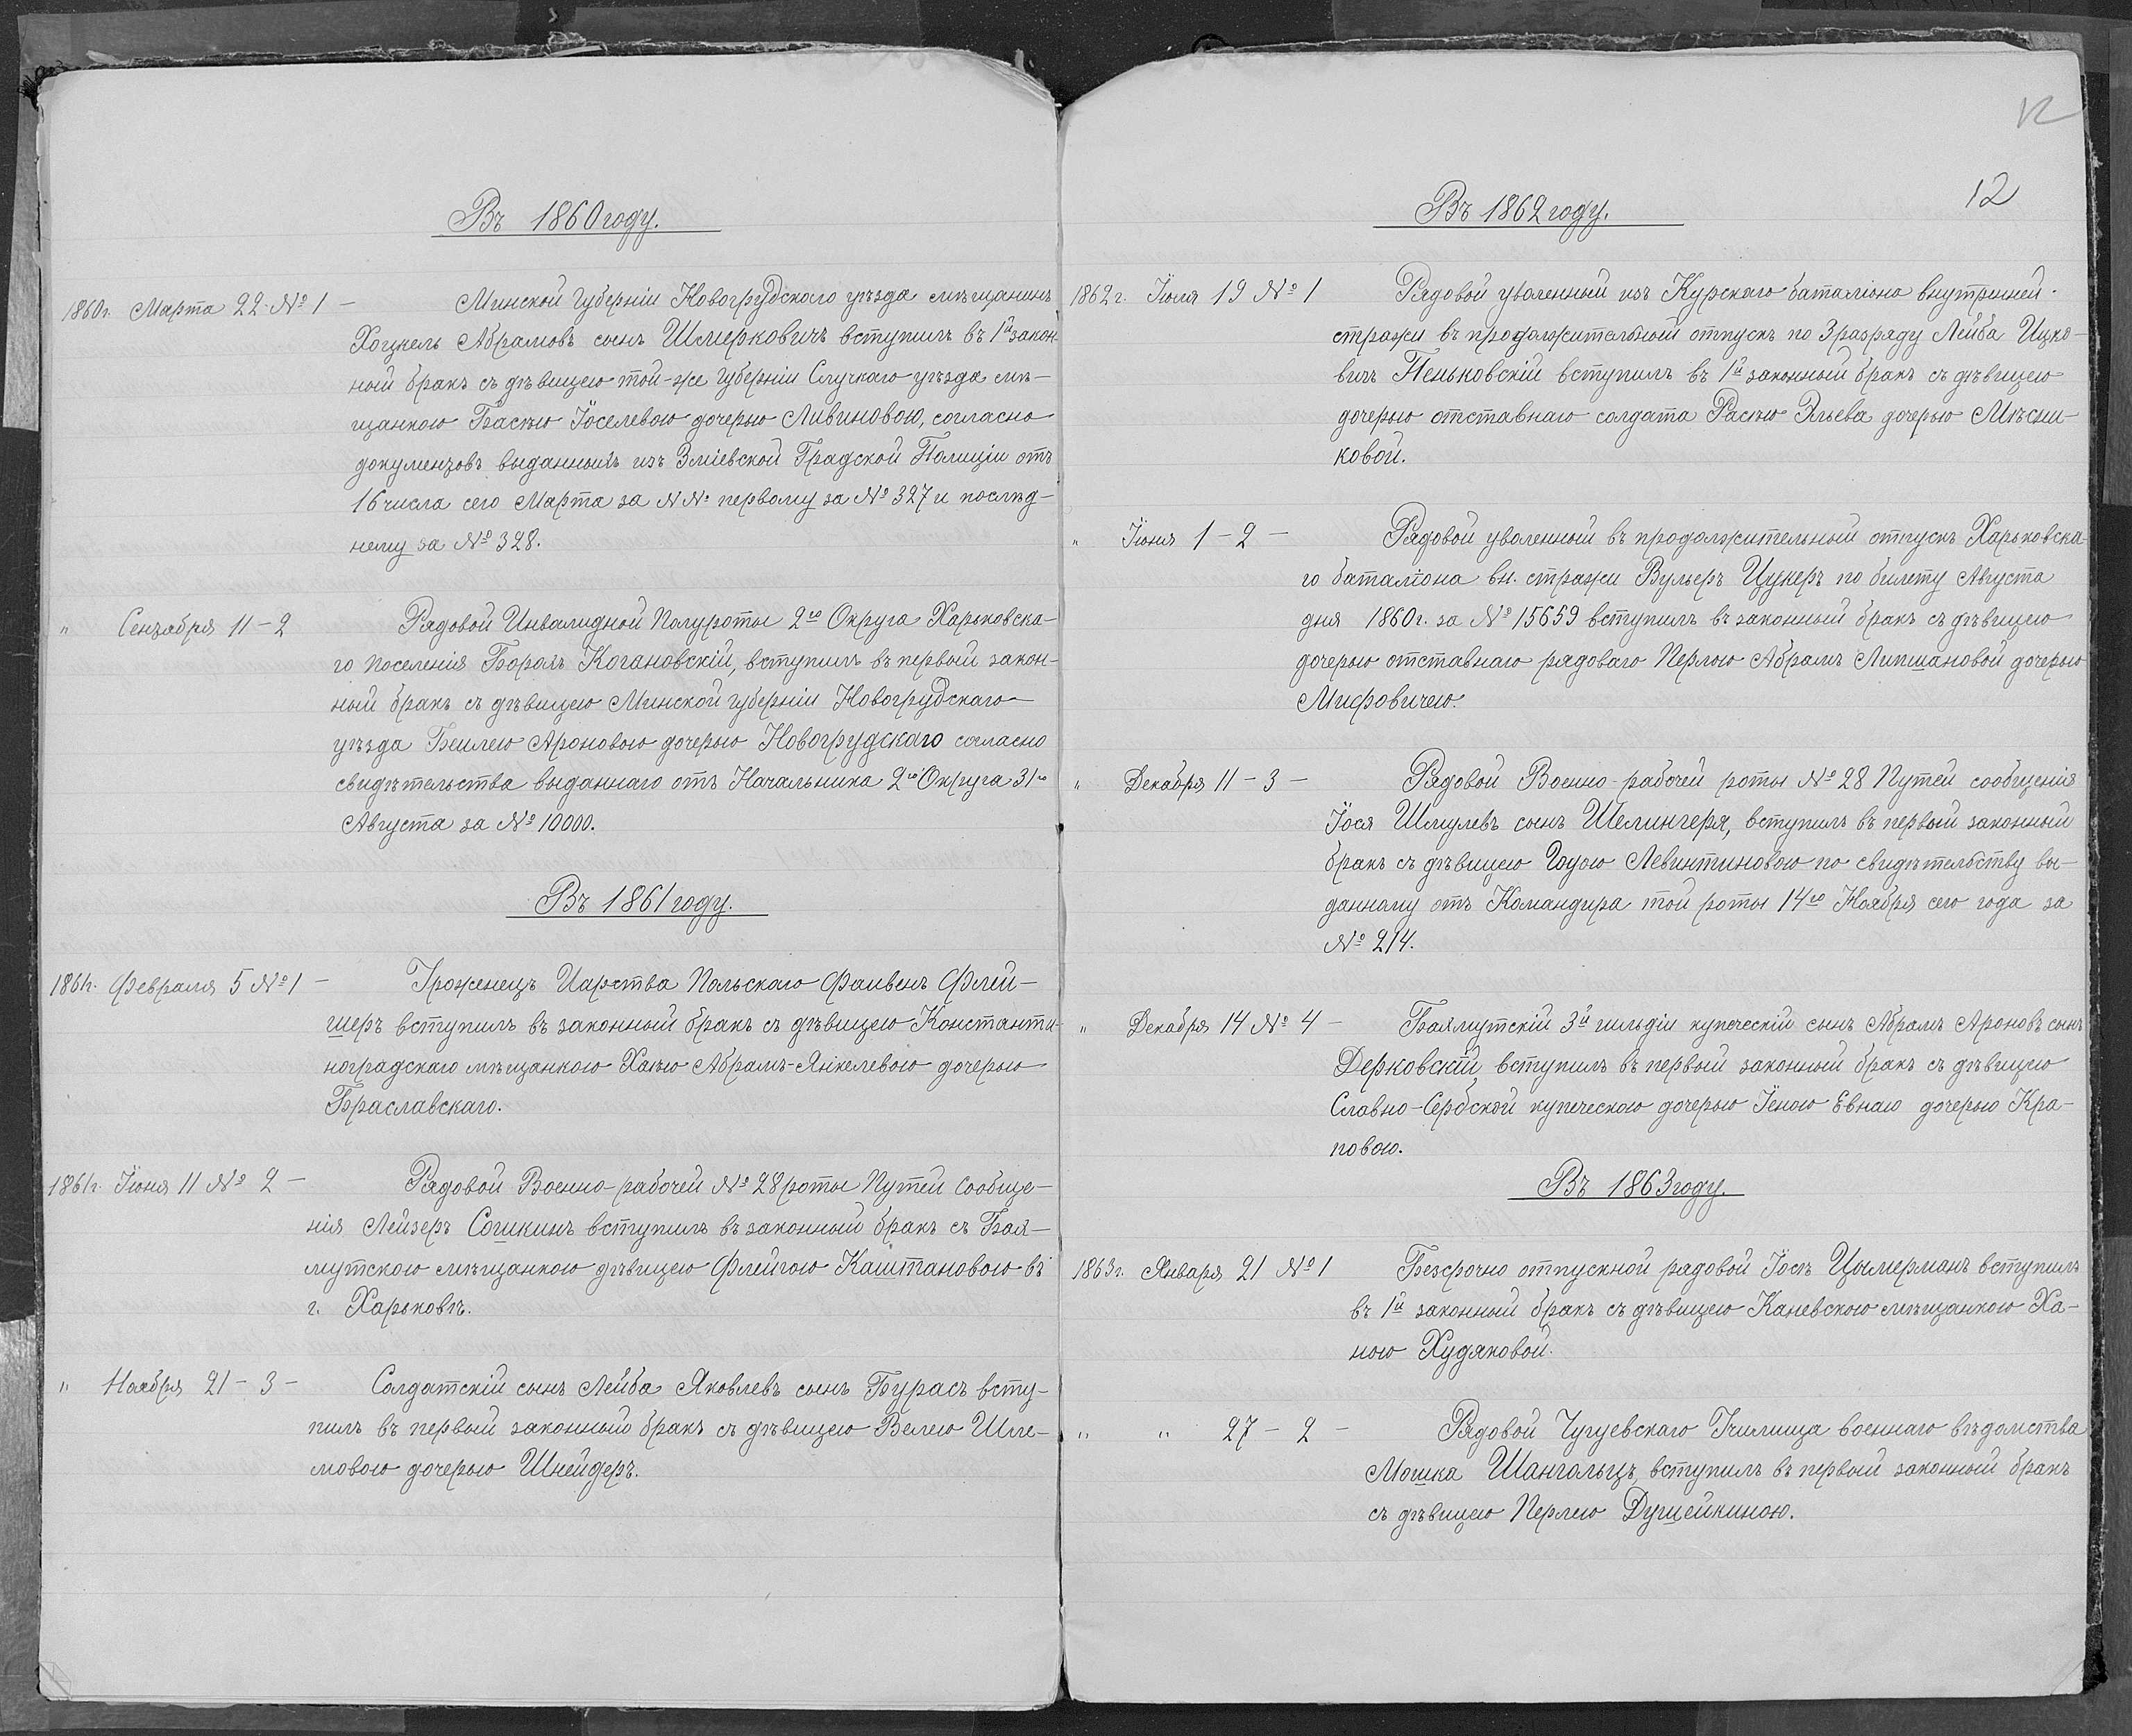 Въ 1860 году.
1860г. Марта 22 № 1 — Минской губерніи Новогрудскаго уѣзда мѣщанинъ
Хоцкель Абрамовъ сынъ Шмерковичъ вступилъ въ 1й закон-
ный бракъ съ дѣвицею той-же губерніи Слуцкаго уѣзда мѣ-
щанкою Баскю Іоселевою дочерью Ливиновою, согласно
документовъ выданныхъ изъ Зміевской Градской Полиціи отъ
16 числа сего Марта за №№ первому за № 327 и послѣд-
нему за № 328.
" Сентября 11 — 2 Рядовой Инвалидной Полуроты 2го Округа Харьковска-
го поселенія Борохъ Когановскій, вступилъ въ первый закон-
ный бракъ съ дѣвицею Минской губерніи Новогрудскаго
уѣзда Беилею Ароновою дочерью Новогрудскаго согласно
свидѣтельства выданнаго отъ Начальника 2го Округа 31го
Августа за № 10000.
Въ 1861 году.
1861г. Февраля 5 № 1 — Уроженецъ Царства Польскаго Фаивенъ Флей-
шеръ вступилъ въ законный бракъ съ дѣвицею Константи-
ноградскаго мѣщанкою Хаею Абрамъ-Янкелевою дочерью
Браславскаго.
1861г. Іюня 11 № 2 — Рядовой Военно-рабочей № 28 роты Путей Сообще-
нія Лейзеръ Сошкинъ вступилъ въ законный бракъ съ Бах-
мутскою мѣщанкою дѣвицею Флейгою Каштановою въ
г. Харьковѣ.
" Ноября 21 — 3 — Солдатскій сынъ Лейба Яковлевъ сынъ Бурасъ всту-
пилъ въ первый законный бракъ съ дѣвицею Велею Шле-
мовою дочерью Шнейдеръ.
12
12
Въ 1862 году.
1862г. Іюля 19 № 1 Рядовой уволенный изъ Курскаго баталіона внутренней
стражи въ продолжительный отпускъ по 3 разряду Лейба Ицко-
вичъ Пеньковскій вступилъ въ 1й законный бракъ съ дѣвицею
дочерью отставнаго солдата Расею Эльева дочерью Мѣсни-
ковой.
" Іюня 1 — 2 — Рядовой уволенный въ продолжительный отпускъ Харьковска-
го баталіона вн. стражи Вульфъ Цукеръ по билету Августа
дня 1860г. за № 15659 вступилъ въ законный бракъ съ дѣвицею
дочерью отставнаго рядоваго Перлою Абрамъ Липшановой дочерью
Мифовичею.
" Декабря 11 — 3 — Рядовой Военно-рабочей роты № 28 Путей сообщенія
Іося Шмулевъ сынъ Шелингеръ, вступилъ въ первый законный
бракъ съ дѣвицею Годою Левинтиновою по свидѣтельству вы-
данному отъ Командира той роты 14го Ноября сего года за
№ 214.
" Декабря 14 № 4 — Бахмутскій 3й гильдіи купеческій сынъ Абрамъ Ароновъ сынъ
Дерковскій, вступилъ въ первый законный бракъ съ дѣвицею
Славно-Сербской купеческою дочерью Іеною Евнаю дочерью Кра-
повою.
Въ 1863 году.
1863г. Января 21 № 1 Безсрочно отпускной рядовой Іосъ Цымерманъ вступилъ
въ 1й законный бракъ съ дѣвицею Каневскою мѣщанкою Ха-
ною Худяковой.
" " 27 — 2 — Рядовой Чугуевскаго Училища военнаго вѣдомства
Мошка Шангольцъ, вступилъ въ первый законный бракъ
съ дѣвицею Перлею Душейкиною.